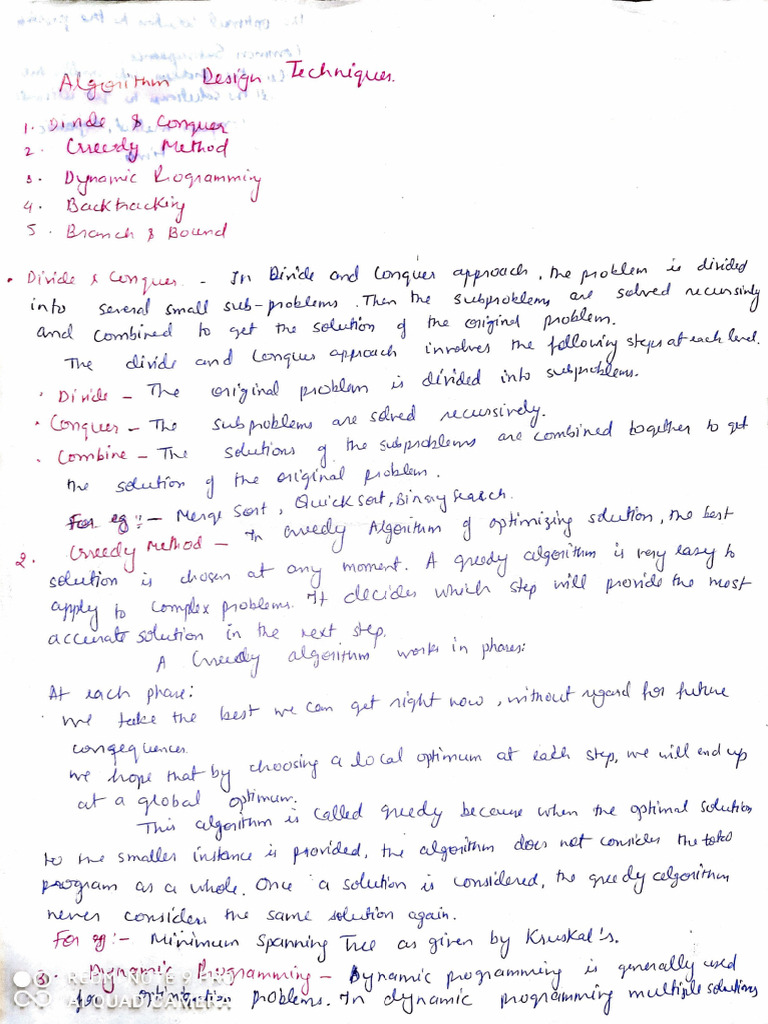 Algorithm Design Techniques.
1. Divide & Conquer
2. Greedy Method
3. Dynamic Programming
4. Backtracking
5. Branch & Bound
• Divide & Conquer - In Divide and Conquer approach, the problem is divided
into several small sub-problems. Then the subproblems are solved recursively
and combined to get the solution of the original problem.
The divide and conquer approach involves the following steps at each level.
• Divide - The original problem is divided into subproblems.
• Conquer - The subproblems are solved recursively.
• Combine - The solutions of the subproblems are combined together to get
the solution of the original problem.
For eg :- Merge Sort, Quick Sort, Binary Search.
2. Greedy Method - In Greedy Algorithm of optimizing solution, the best
solution is chosen at any moment. A greedy algorithm is very easy to
apply to complex problems. It decides which step will provide the most
accurate solution in the next step.
A Greedy algorithm works in phases:
At each phase:
• we take the best we can get right now, without regard for future
consequences.
we hope that by choosing a local optimum at each step, we will end up
at a global optimum.
This algorithm is called greedy because when the optimal solution
to the smaller instance is provided, the algorithm does not consider the total
program as a whole. Once a solution is considered, the greedy algorithm
never considers the same solution again.
For eg :- Minimum Spanning Tree as given by Kruskal's.
3. Dynamic Programming - Dynamic programming is generally used
for optimization problems. In dynamic programming multiple solutions
REDMI NOTE 9 PRO
AI QUAD CAMERA